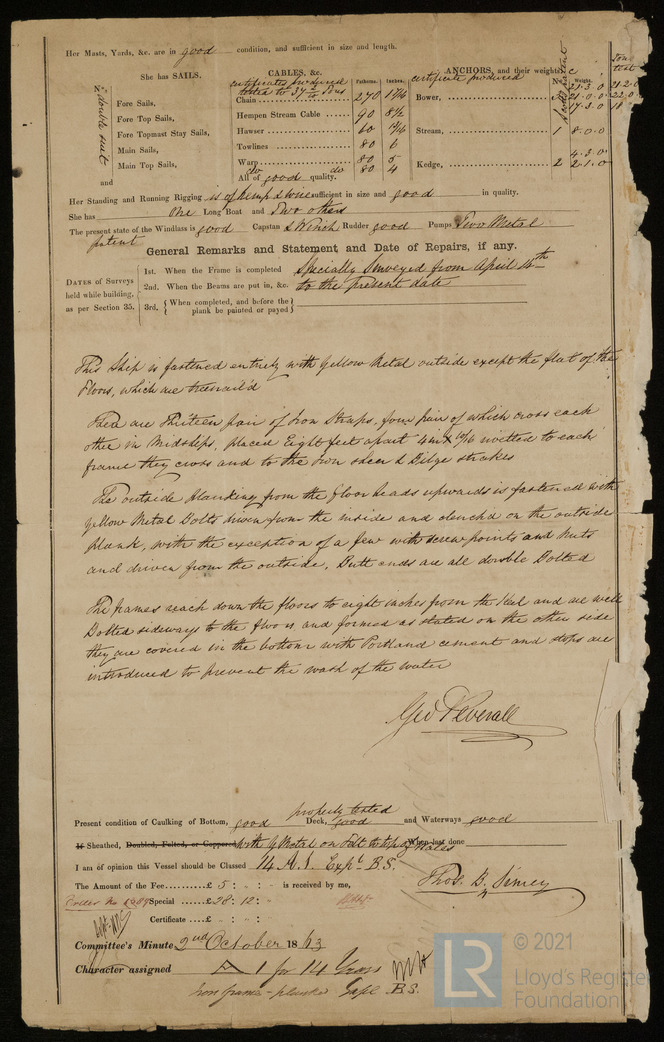 Her Masts, Yards, &c. are in good condition, and sufficient in size and length.
She has SAILS.
2 double suit
Fore Sails,
Fore Top Sails,
Fore Topmast Stay Sails,
Main Sails,
Main Top Sails,
and
CABLES, &c. Fathoms. Inches.
certificates produced
tested to 37 Tons
Chain 270 1 11/16
Hempen Stream Cable 90 8½
Hawser 60
Towlines 80 6
Warp 80 5
do do 80 4
All of good quality.
ANCHORS, and their weights.
certificate produced
No. Weight.
Bower, 21.3.0
21.0.0
17.3.0
Stream, 1 8.0.0
Kedge, 2 4.3.0
2.1.0
Her Standing and Running Rigging is of hemp & wire sufficient in size and good in quality.
She has One Long Boat and Two others
The present state of the Windlass is good Capstan & Winch Rudder good Pumps Two Metal
patent
General Remarks and Statement and Date of Repairs, if any.
DATES of Surveys held while building, as per Section 35.
1st. When the Frame is completed Specially Surveyed from April 14th
2nd. When the Beams are put in, &c. to the present date
3rd. { When completed, and before the plank be painted or payed }
This Ship is fastened entirely with Yellow Metal outside except the flat of the
Floors, which are treenail'd
There are Thirteen pair of Iron Straps, four pair of which cross each
other in Midships, placed Eight feet apart 4 in x 10/16 rivetted to each
frame they cross and to the Iron sheer & Bilge strakes
The outside planking from the floor heads upwards is fastened with
Yellow Metal Bolts driven from the inside and clench'd on the outside
plank, with the exception of a few with screw points and nuts
and driven from the outside. Butt ends are all double Bolted
The frames reach down the floors to eight inches from the Keel and are well
Bolted sideways to the floors and formed as stated on the other side
they are covered in the bottom with Portland cement and stops are
introduced to prevent the wash of the water
Geo Peverall
Present condition of Caulking of Bottom, good Deck, good and Waterways good
properly tested
If Sheathed, Doubled, Felted, or Coppered with Y Metal on Felt to top of Wales When last done
I am of opinion this Vessel should be Classed 14 A.1. Expl. B.S.
The Amount of the Fee £ 5 : : is received by me,
Special £ 28 : 12 :
Certificate £ : :
Thos. B. Simey
Committee's Minute 2nd October 1863
Character assigned A 1 for 14 Years
Iron frame - planked Expl B.S.
LR
© 2021
Lloyd's Register
Foundation